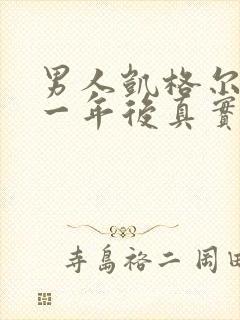 男人凱格尔
一年後真實
寺島裕二 岡田